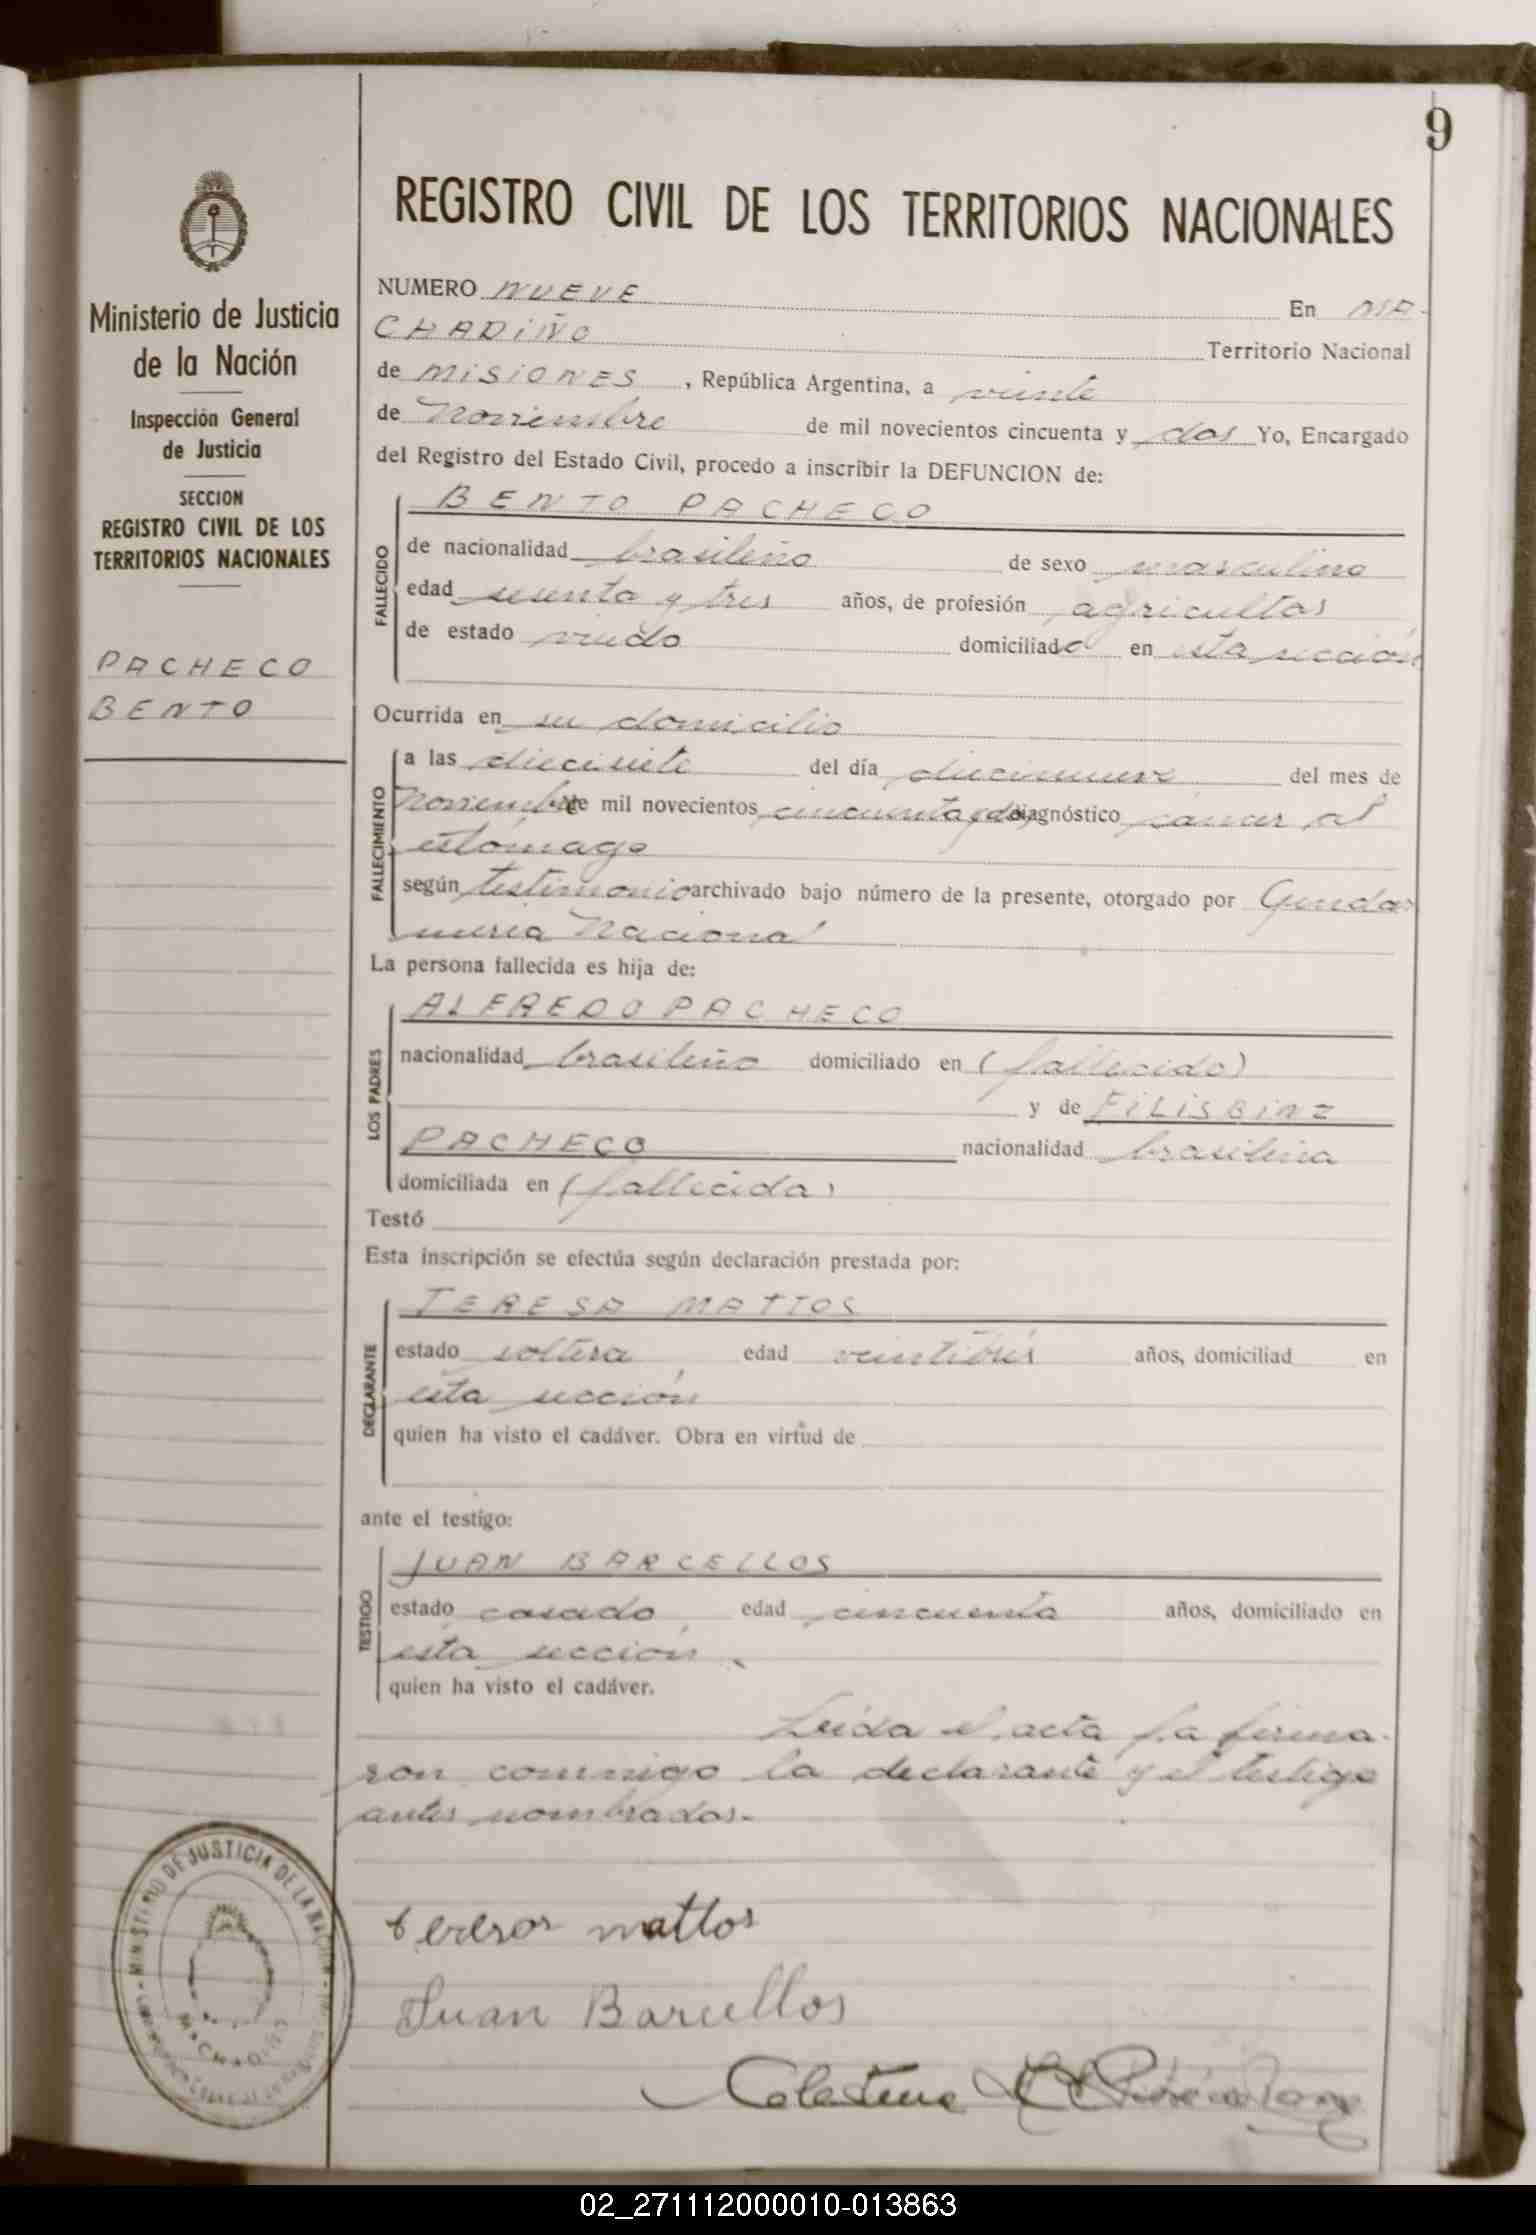 9
REGISTRO CIVIL DE LOS TERRITORIOS NACIONALES
Ministerio de Justicia
de la Nación
Inspección General
de Justicia
SECCION
REGISTRO CIVIL DE LOS
TERRITORIOS NACIONALES
PACHECO
BENTO
NUMERO NUEVE En MA-
CHADIÑO Territorio Nacional
de MISIONES, República Argentina, a veinte
de Noviembre de mil novecientos cincuenta y dos Yo, Encargado
del Registro del Estado Civil, procedo a inscribir la DEFUNCION de:
BENTO PACHECO
FALLECIDO
de nacionalidad brasileño de sexo masculino
edad sesenta y tres años, de profesión agricultor
de estado viudo domiciliado en esta sección
Ocurrida en su domicilio
FALLECIMIENTO
a las diecisiete del día diecinueve del mes de
Noviembre de mil novecientos cincuenta y dos diagnóstico cáncer al
estómago
según testimonio archivado bajo número de la presente, otorgado por Gendar
mería Nacional
La persona fallecida es hija de:
LOS PADRES
ALFREDO PACHECO
nacionalidad brasileño domiciliado en (fallecido)
y de FILISBINZ
PACHECO nacionalidad brasileña
domiciliada en (fallecida)
Testó
Esta inscripción se efectúa según declaración prestada por:
DECLARANTE
TERESA MATTOS
estado soltera edad años, domiciliad en
esta sección
quien ha visto el cadáver. Obra en virtud de
ante el testigo:
TESTIGO
JUAN BARCELLOS
estado casado edad cincuenta años, domiciliado en
esta sección.
quien ha visto el cadáver.
Leída el acta la firma-
ron conmigo la declarante y el testigo
antes nombrados.-
teresa mattos
Juan Barcellos
MINISTERIO DE JUSTICIA DE LA NACION
MACHADIÑO
02_271112000010-013863